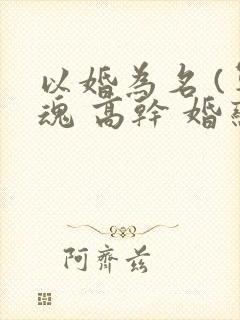 以婚為名（
魂 高幹 婚
阿齊茲